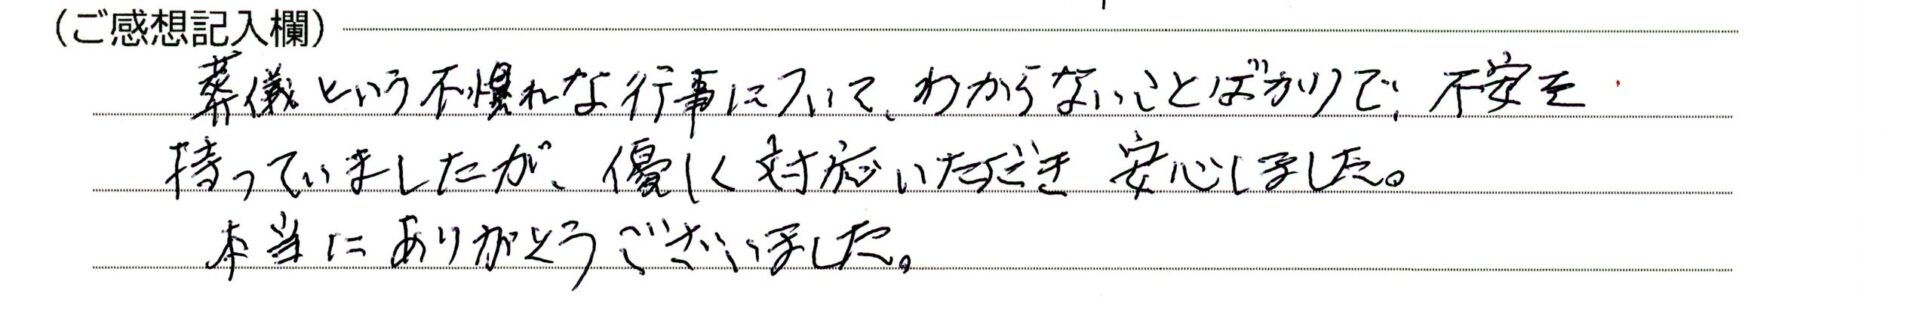 （ご感想記入欄）
葬儀という不慣れな行事について、わからないことばかりで、不安を
持っていましたが、優しく対応いただき安心しました。
本当にありがとうございました。